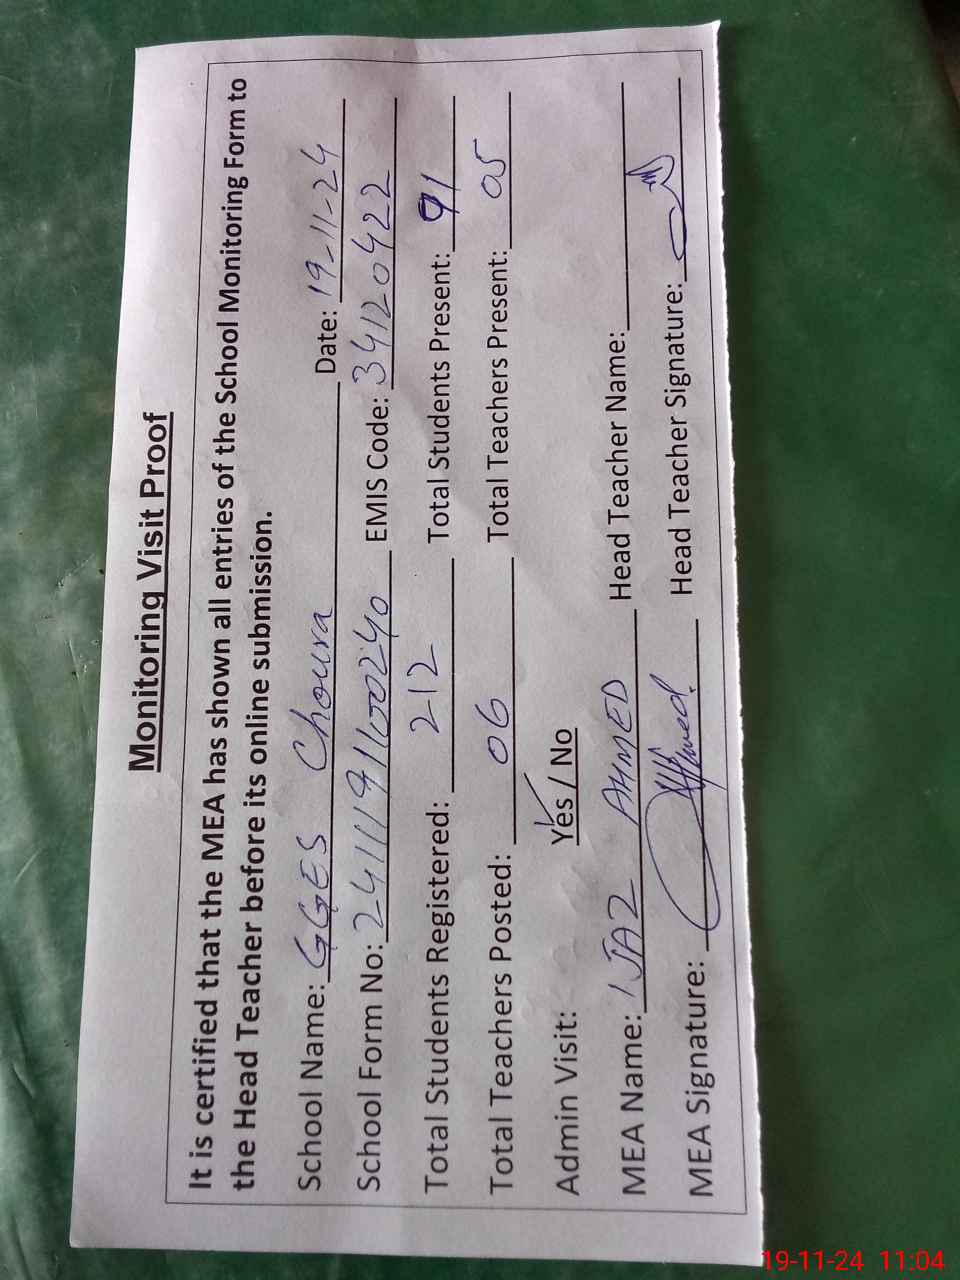 Monitoring Visit Proof
It is certified that the MEA has shown all entries of the School Monitoring Form to
the Head Teacher before its online submission.
School Name: GGES Choura Date: 19-11-24
School Form No: 2411191100240 EMIS Code: 34120422
Total Students Registered: 212 Total Students Present: 91
Total Teachers Posted: 06 Total Teachers Present: 05
Admin Visit: Yes / No
MEA Name: IJAZ AHMED Head Teacher Name:
MEA Signature: Head Teacher Signature:
19-11-24 11:04